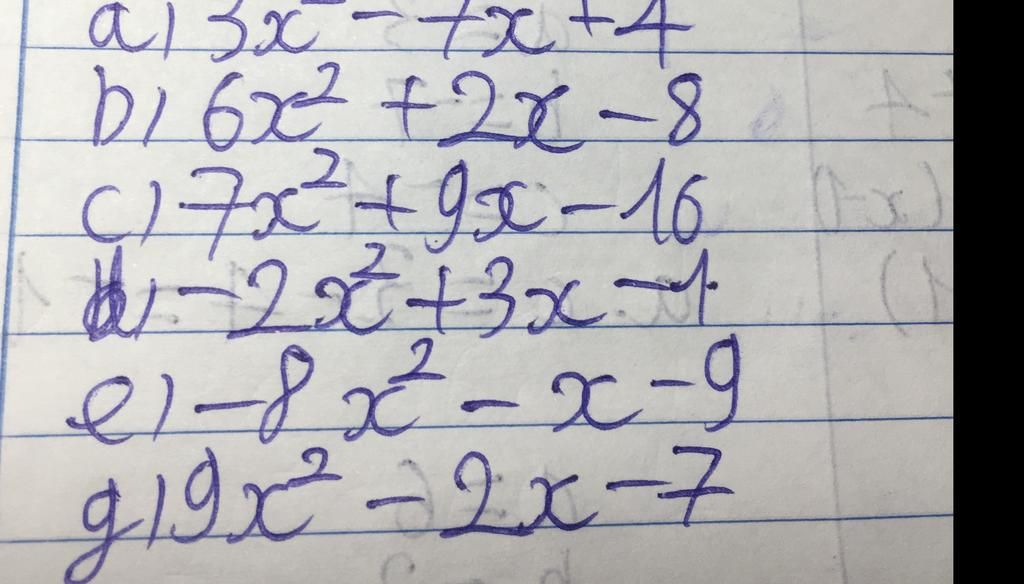 a) 3x² - 7x + 4
b) 6x² + 2x - 8
c) 7x² + 9x - 16
d) -2x² + 3x - 1
e) -8x² - x - 9
g) 9x² - 2x - 7